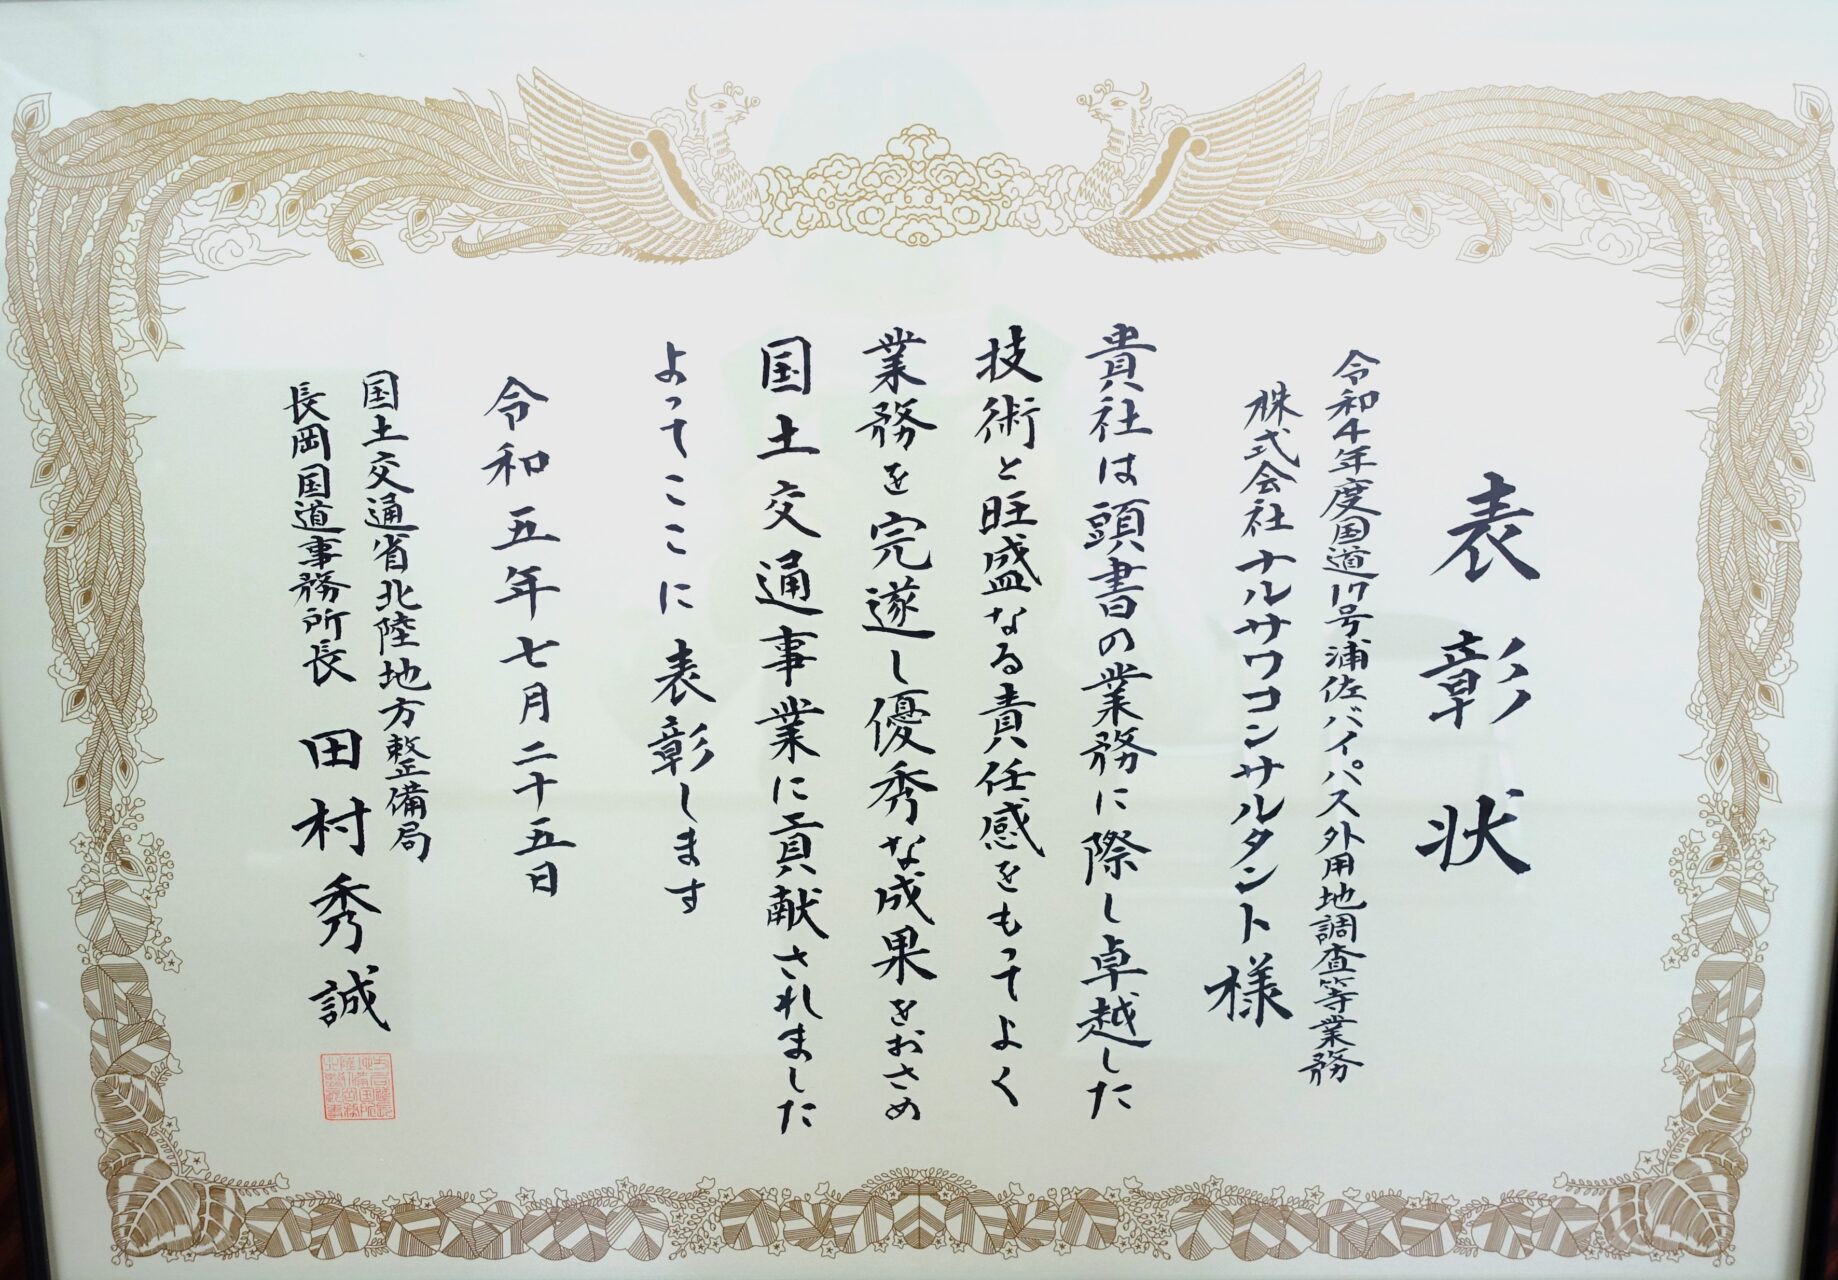 表彰状
令和4年度国道17号浦佐バイパス外用地調査等業務
株式会社ナルサワコンサルタント様
貴社は頭書の業務に際し卓越した
技術と旺盛なる責任感をもってよく
業務を完遂し優秀な成果をおさめ
国土交通事業に貢献されました
よってここに表彰します
令和五年七月二十五日
国土交通省北陸地方整備局
長岡国道事務所長 田村秀誠